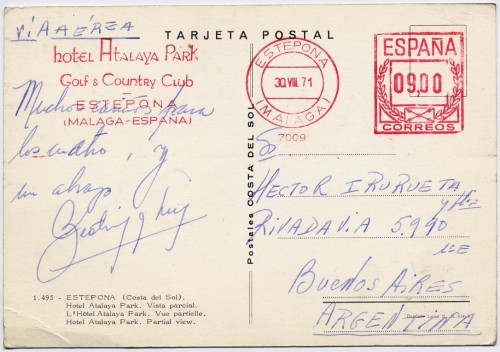 VIA AÉREA
TARJETA POSTAL
hotel Atalaya Park
Golf & Country Club
ESTEPONA
(MALAGA-ESPAÑA)
ESTEPONA
30.VIII.71
(MALAGA)
7009
ESPAÑA
0900
CORREOS
Muchos cariños para
los cuatro, y
un abrazo
Postales COSTA DEL SOL
HECTOR IRURUETA
RIVADAVIA 5990
BUENOS AIRES
ARGENTINA
1.495 - ESTEPONA (Costa del Sol).
Hotel Atalaya Park. Vista parcial.
L'Hôtel Atalaya Park. Vue partielle.
Hotel Atalaya Park. Partial view.